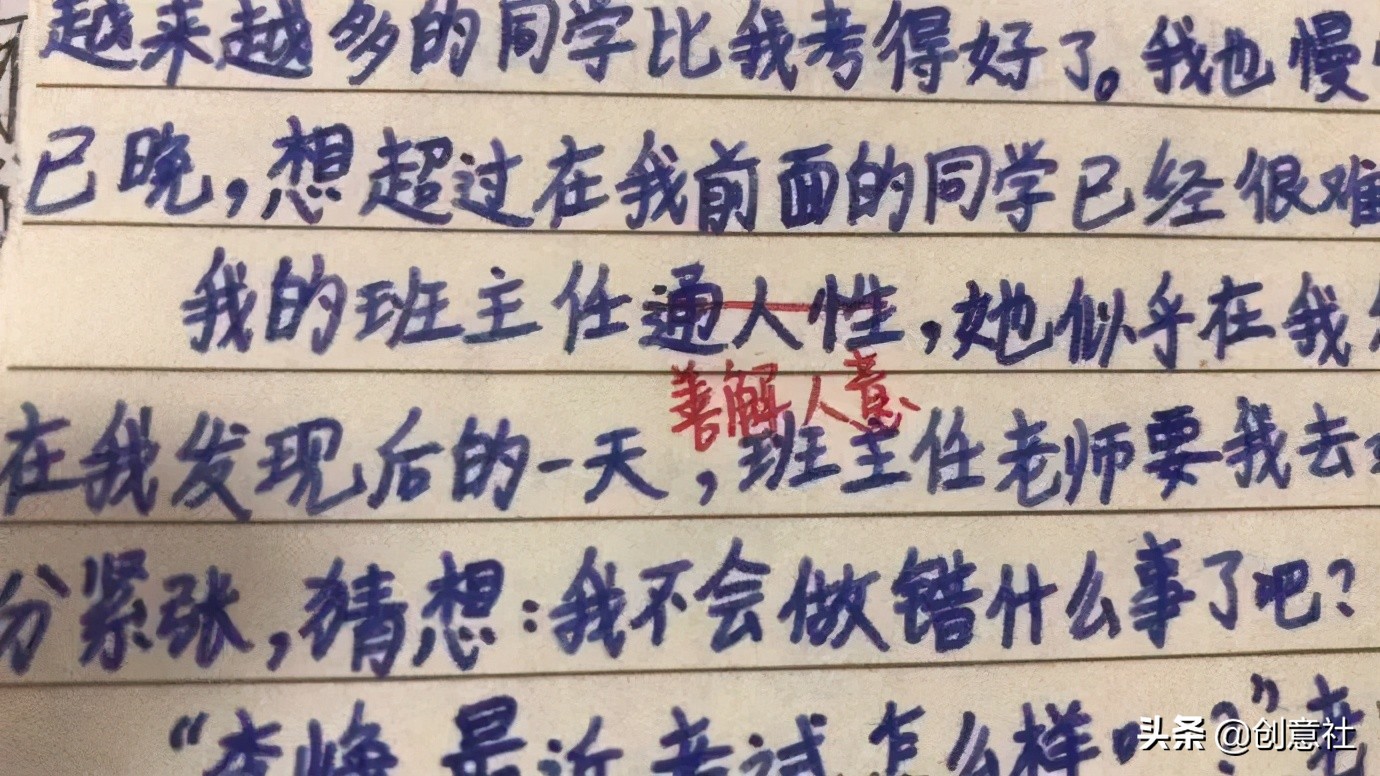 越来越多的同学比我考得好了。我也慢
已晚，想超过在我前面的同学已经很难
我的班主任通人性，她似乎在我
善解人意
在我发现后的一天，班主任老师要我去
分紧张，猜想：我不会做错什么事了吧？
“李 最近考试怎么样 ？”老
头条 @创意社